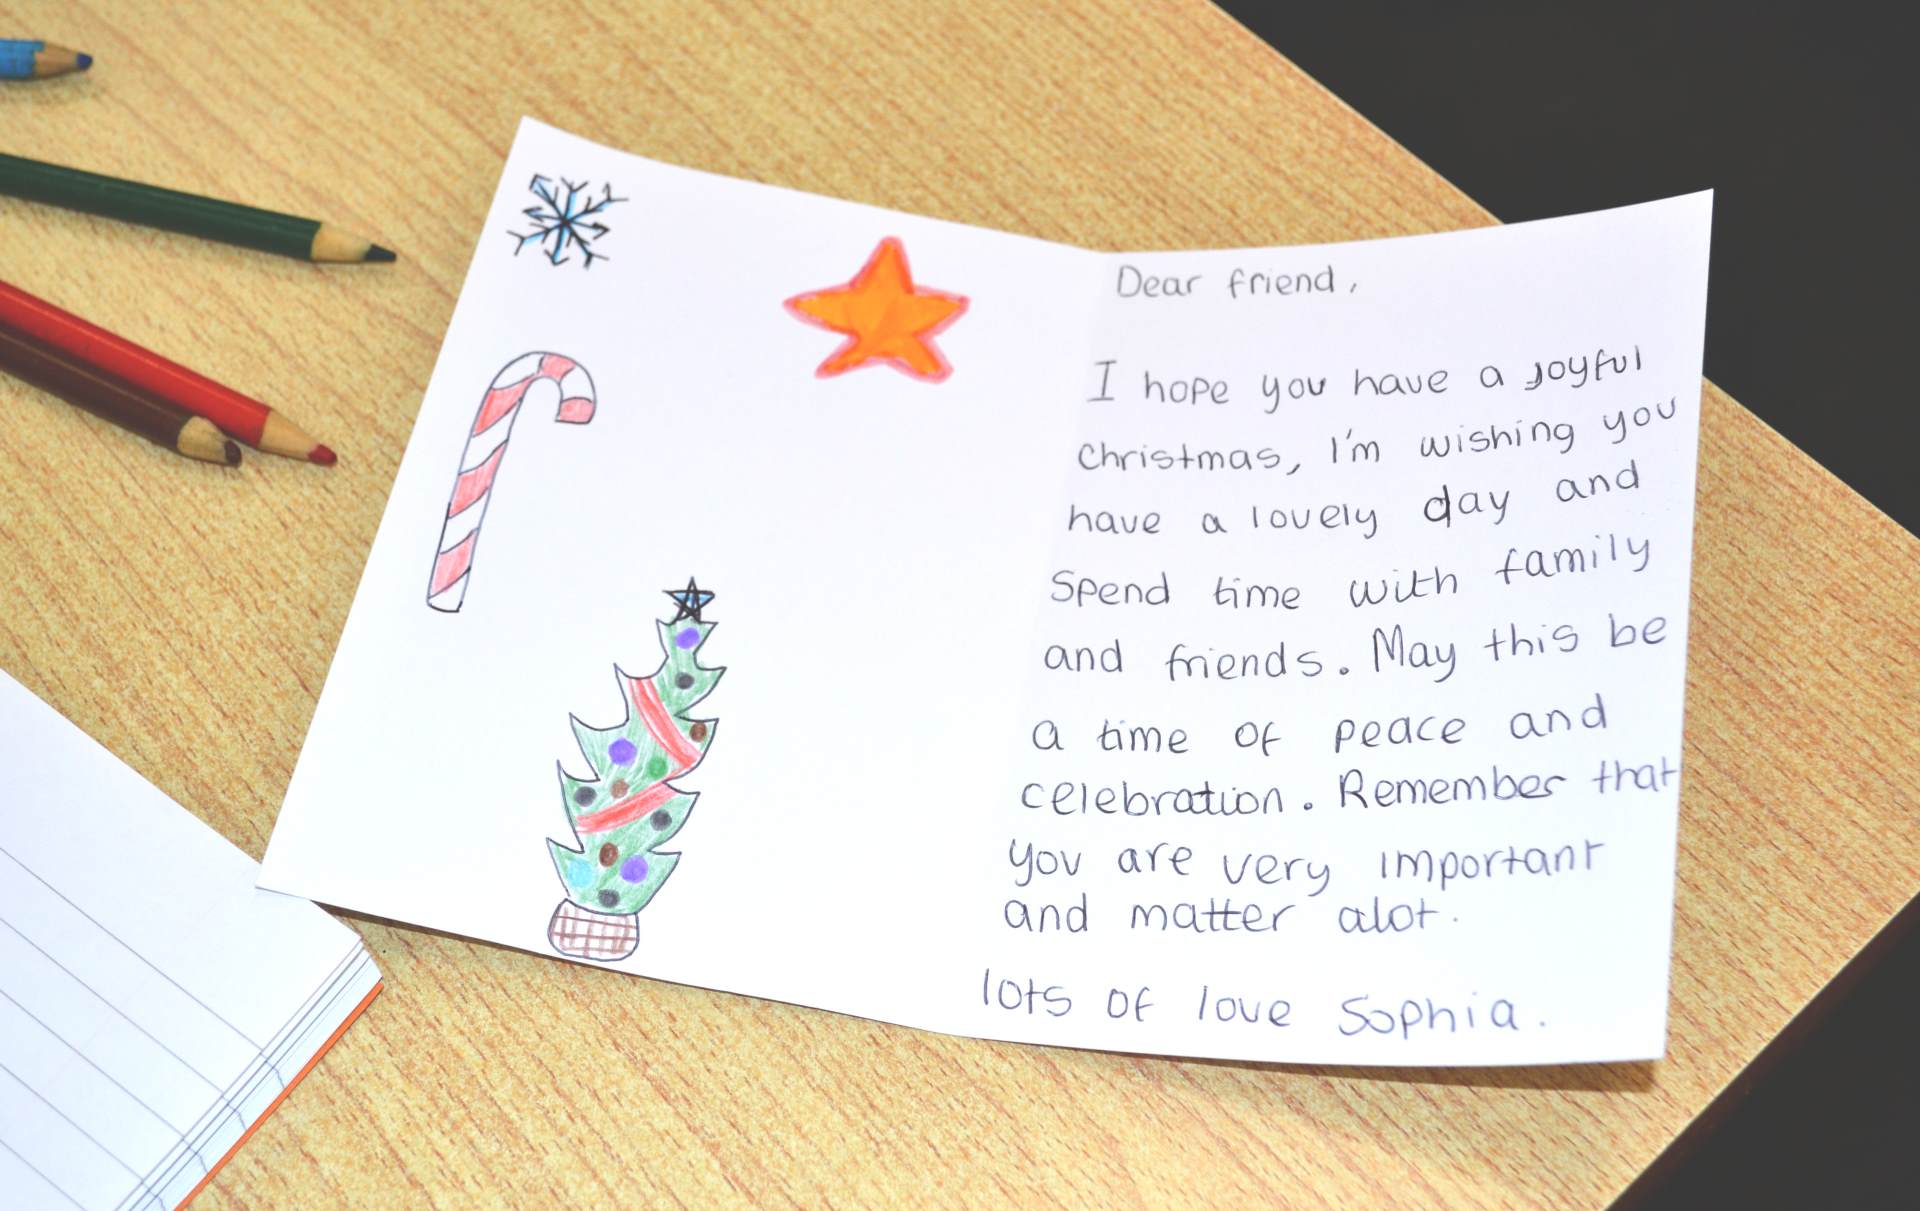 Dear friend,
I hope you have a joyful
christmas, I'm wishing you
have a lovely day and
spend time with family
and friends. May this be
a time of peace and
celebration. Remember that
you are very important
and matter alot.
lots of love Sophia.